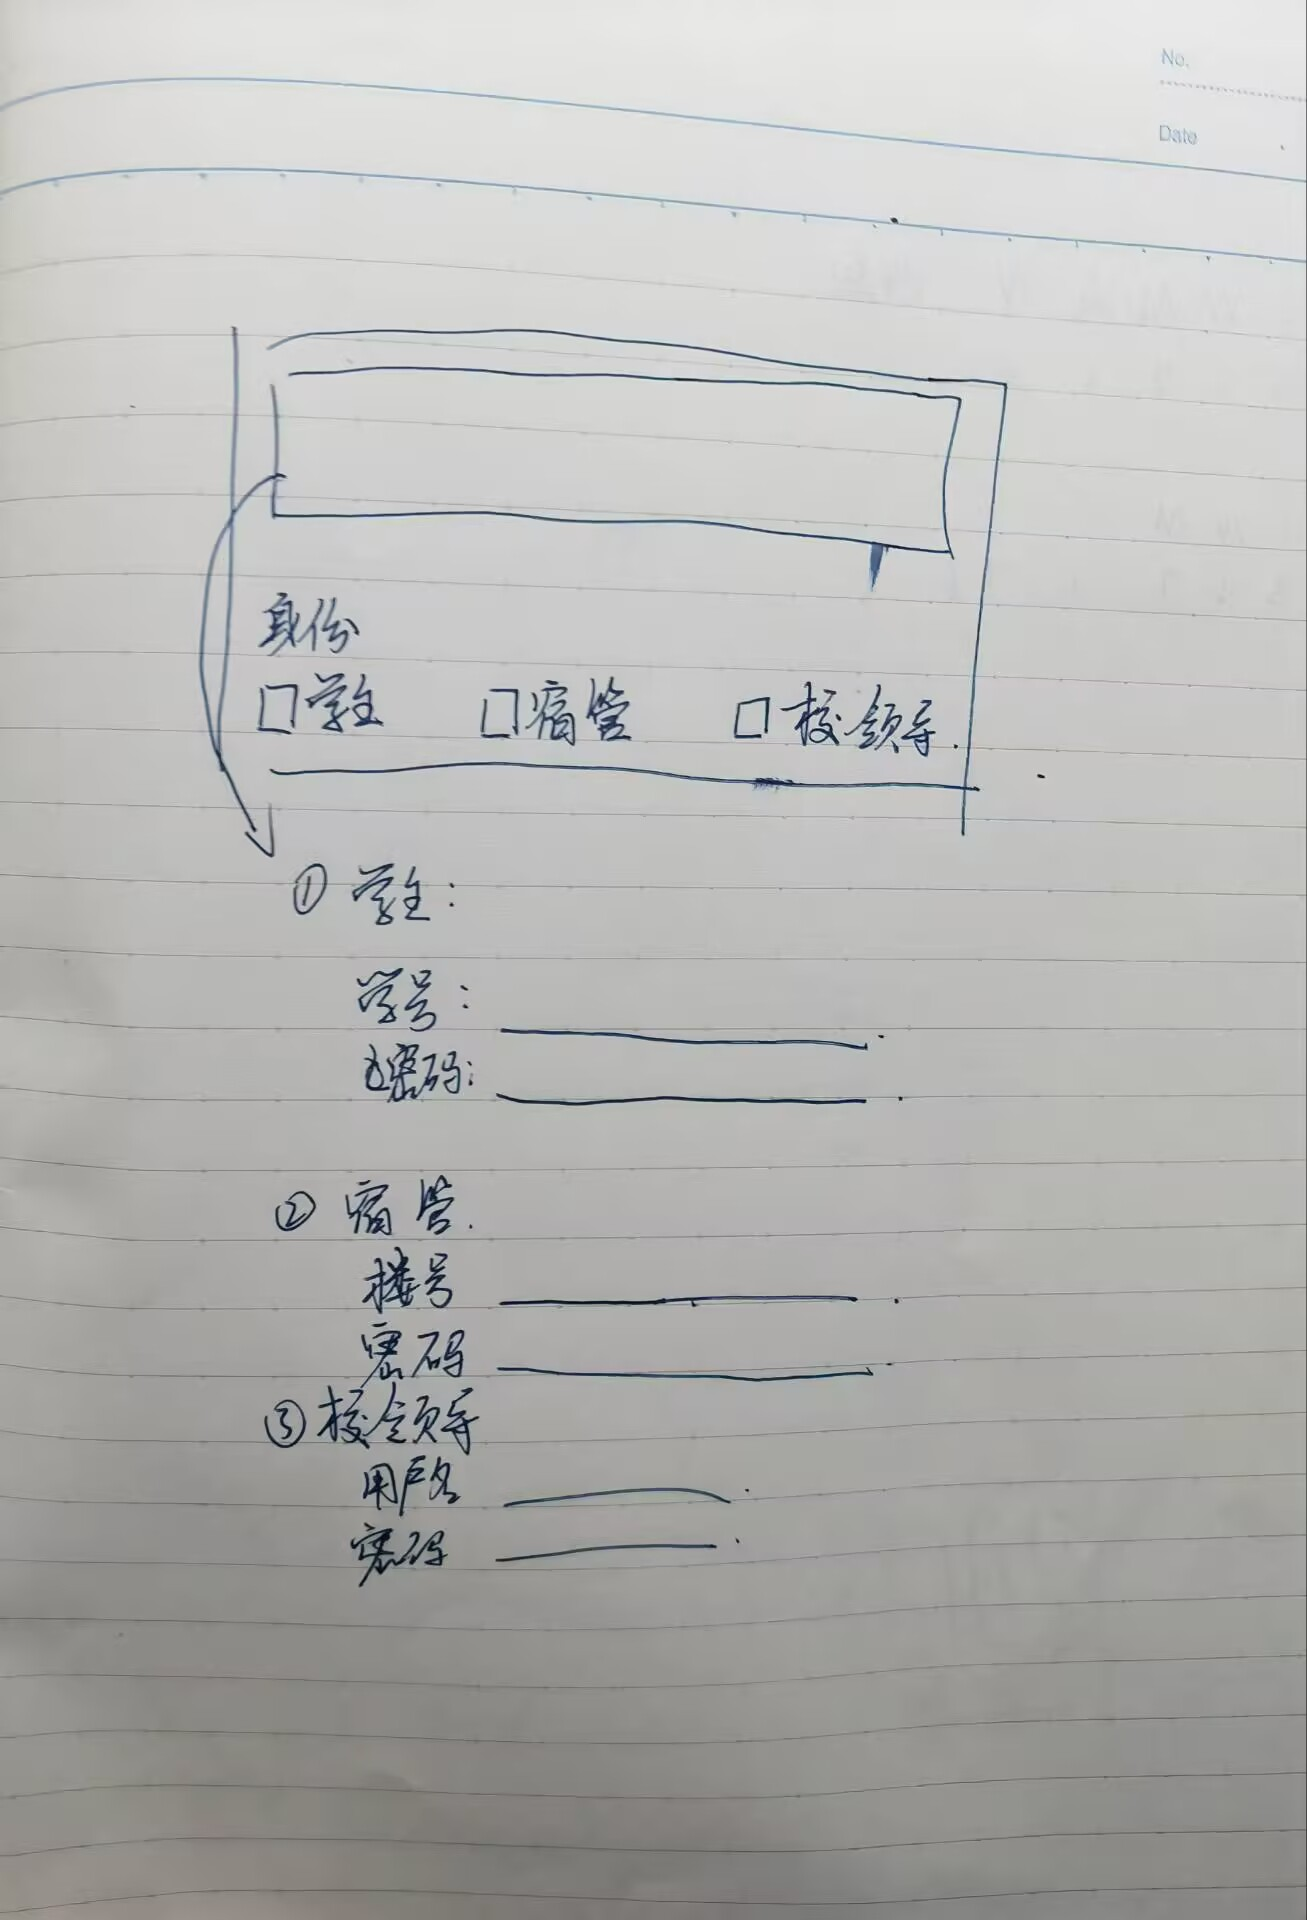 No.
Date
身份
□学生 □宿管 □校领导.
① 学生:
学号:
密码:
② 宿管.
楼号
密码
③校领导
用户名
密码